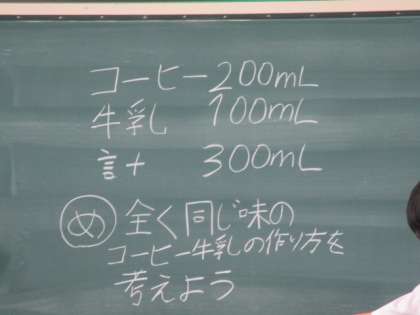 コーヒー200mL
牛乳 100mL
計 300mL
め 全く同じ味の
コーヒー牛乳の作り方を
考えよう